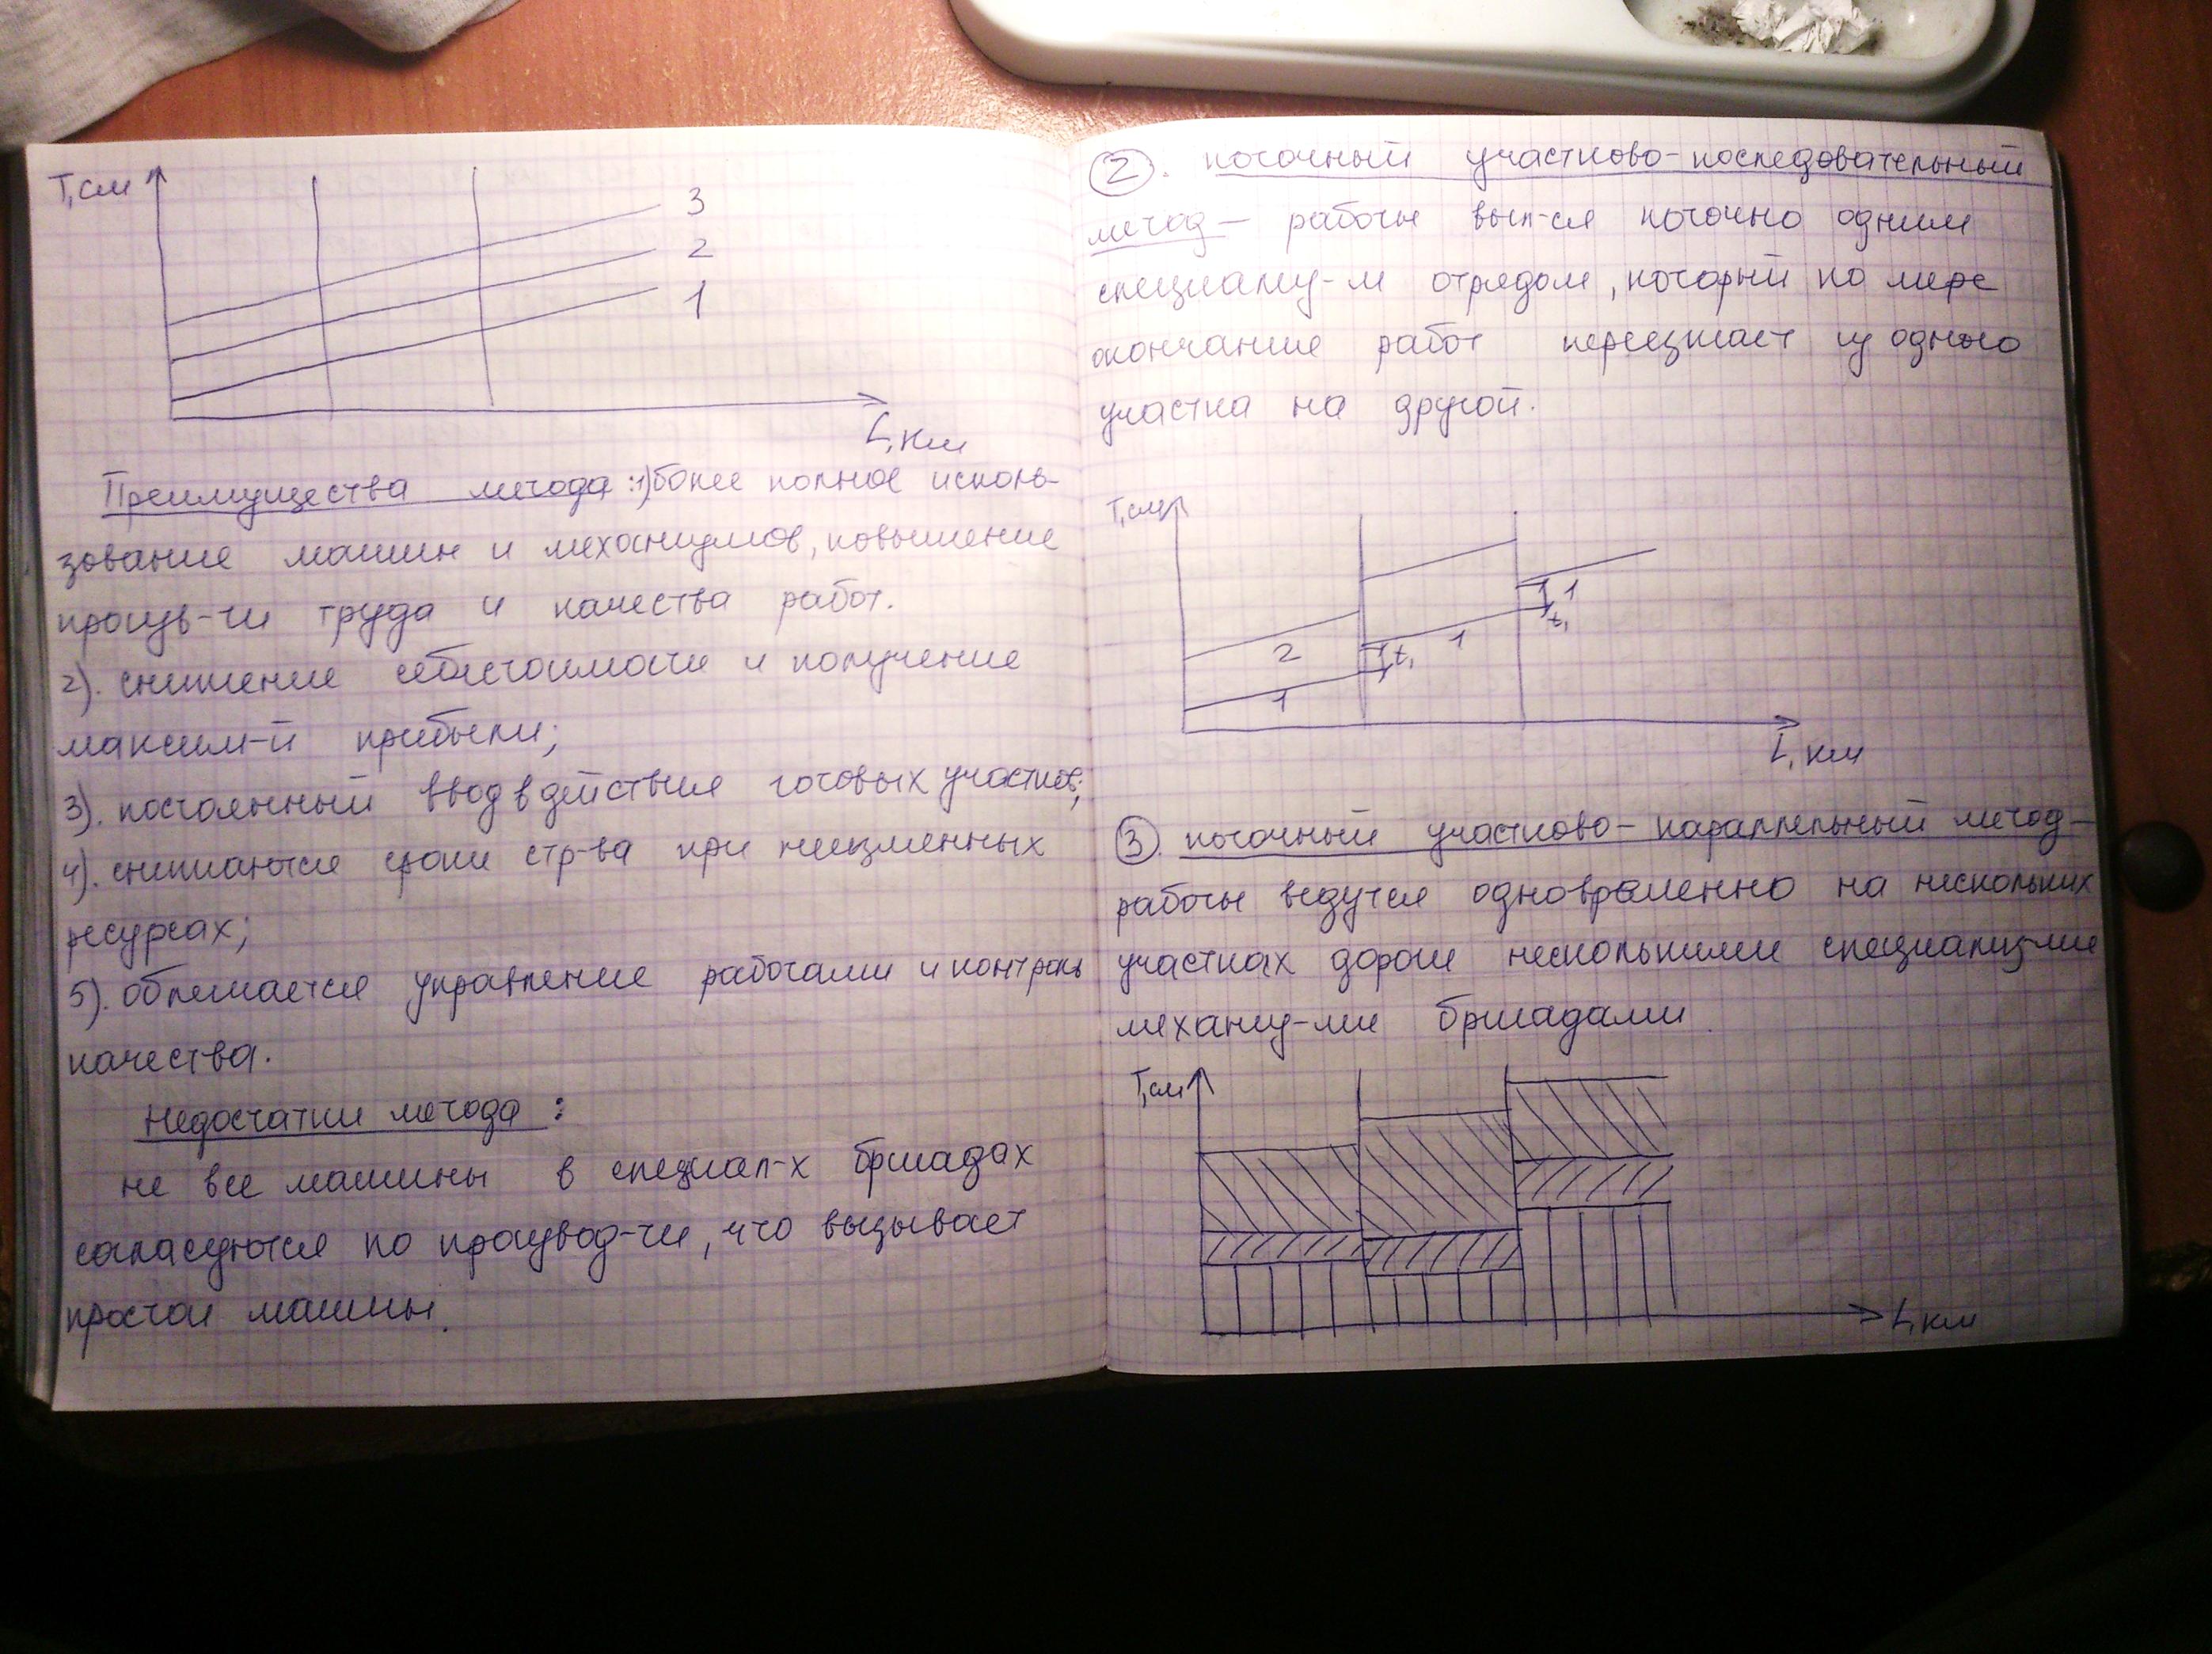 Т,см
3
2
1
L, км
Преимущества метода: 1) более полное исполь-
зование машин и механизмов, повышение
произв-ти труда и качества работ.
2). снижение себестоимости и получение
максим-й прибыли;
3). постоянный ввод в действия готовых участков;
4). снижаются сроки стр-ва при неизменных
ресурсах;
5). облегчается управление работами и контроль
качества.
Недостатки метода:
не все машины в специал-х бригадах
согласуются по производ-ти, что вызывает
простои машины.
2. поточный участково-последовательный
метод - работы вып-ся поточно одним
специализ-м отрядом, который по мере
окончание работ переезжает из одного
участка на другой.
Т,см
2
1
t₁
1
t₁
1
L, км
3. поточный участково-параллельный метод -
работы ведутся одновременно на нескольких
участках дороги несколькими специализ-ми
механиз-ми бригадами
Т,см
L,км